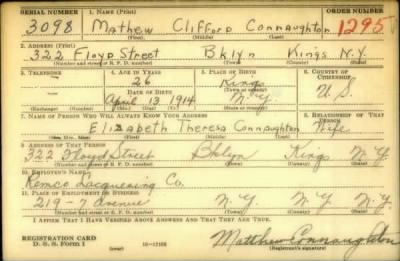 SERIAL NUMBER 1. NAME (Print) ORDER NUMBER
3098 Mathew Clifford Connaughton 1295
(First) (Middle) (Last)
2. ADDRESS (Print)
322 Floyd Street Bklyn Kings N.Y.
(Number and street or R. F. D. number) (Town) (County) (State)
3. TELEPHONE 4. AGE IN YEARS 5. PLACE OF BIRTH 6. COUNTRY OF CITIZENSHIP
26 Kings
DATE OF BIRTH (Town or county)
April 13 1914 N.Y. U.S.
(Exchange) (Number) (Mo.) (Day) (Yr.) (State or country)
7. NAME OF PERSON WHO WILL ALWAYS KNOW YOUR ADDRESS 8. RELATIONSHIP OF THAT PERSON
Elizabeth Theresa Connaughton Wife
(Mr., Mrs., Miss) (First) (Middle) (Last)
9. ADDRESS OF THAT PERSON
322 Floyd Street Bklyn Kings N.Y.
(Number and street or R. F. D. number) (Town) (County) (State)
10. EMPLOYER'S NAME
Remco Lacquering Co.
11. PLACE OF EMPLOYMENT OR BUSINESS
219-7 Avenue N.Y. N.Y. N.Y.
(Number and street or R. F. D. number) (Town) (County) (State)
I AFFIRM THAT I HAVE VERIFIED ABOVE ANSWERS AND THAT THEY ARE TRUE.
REGISTRATION CARD
D. S. S. Form 1 (over) 16—17105 Matthew Connaughton
(Registrant's signature)